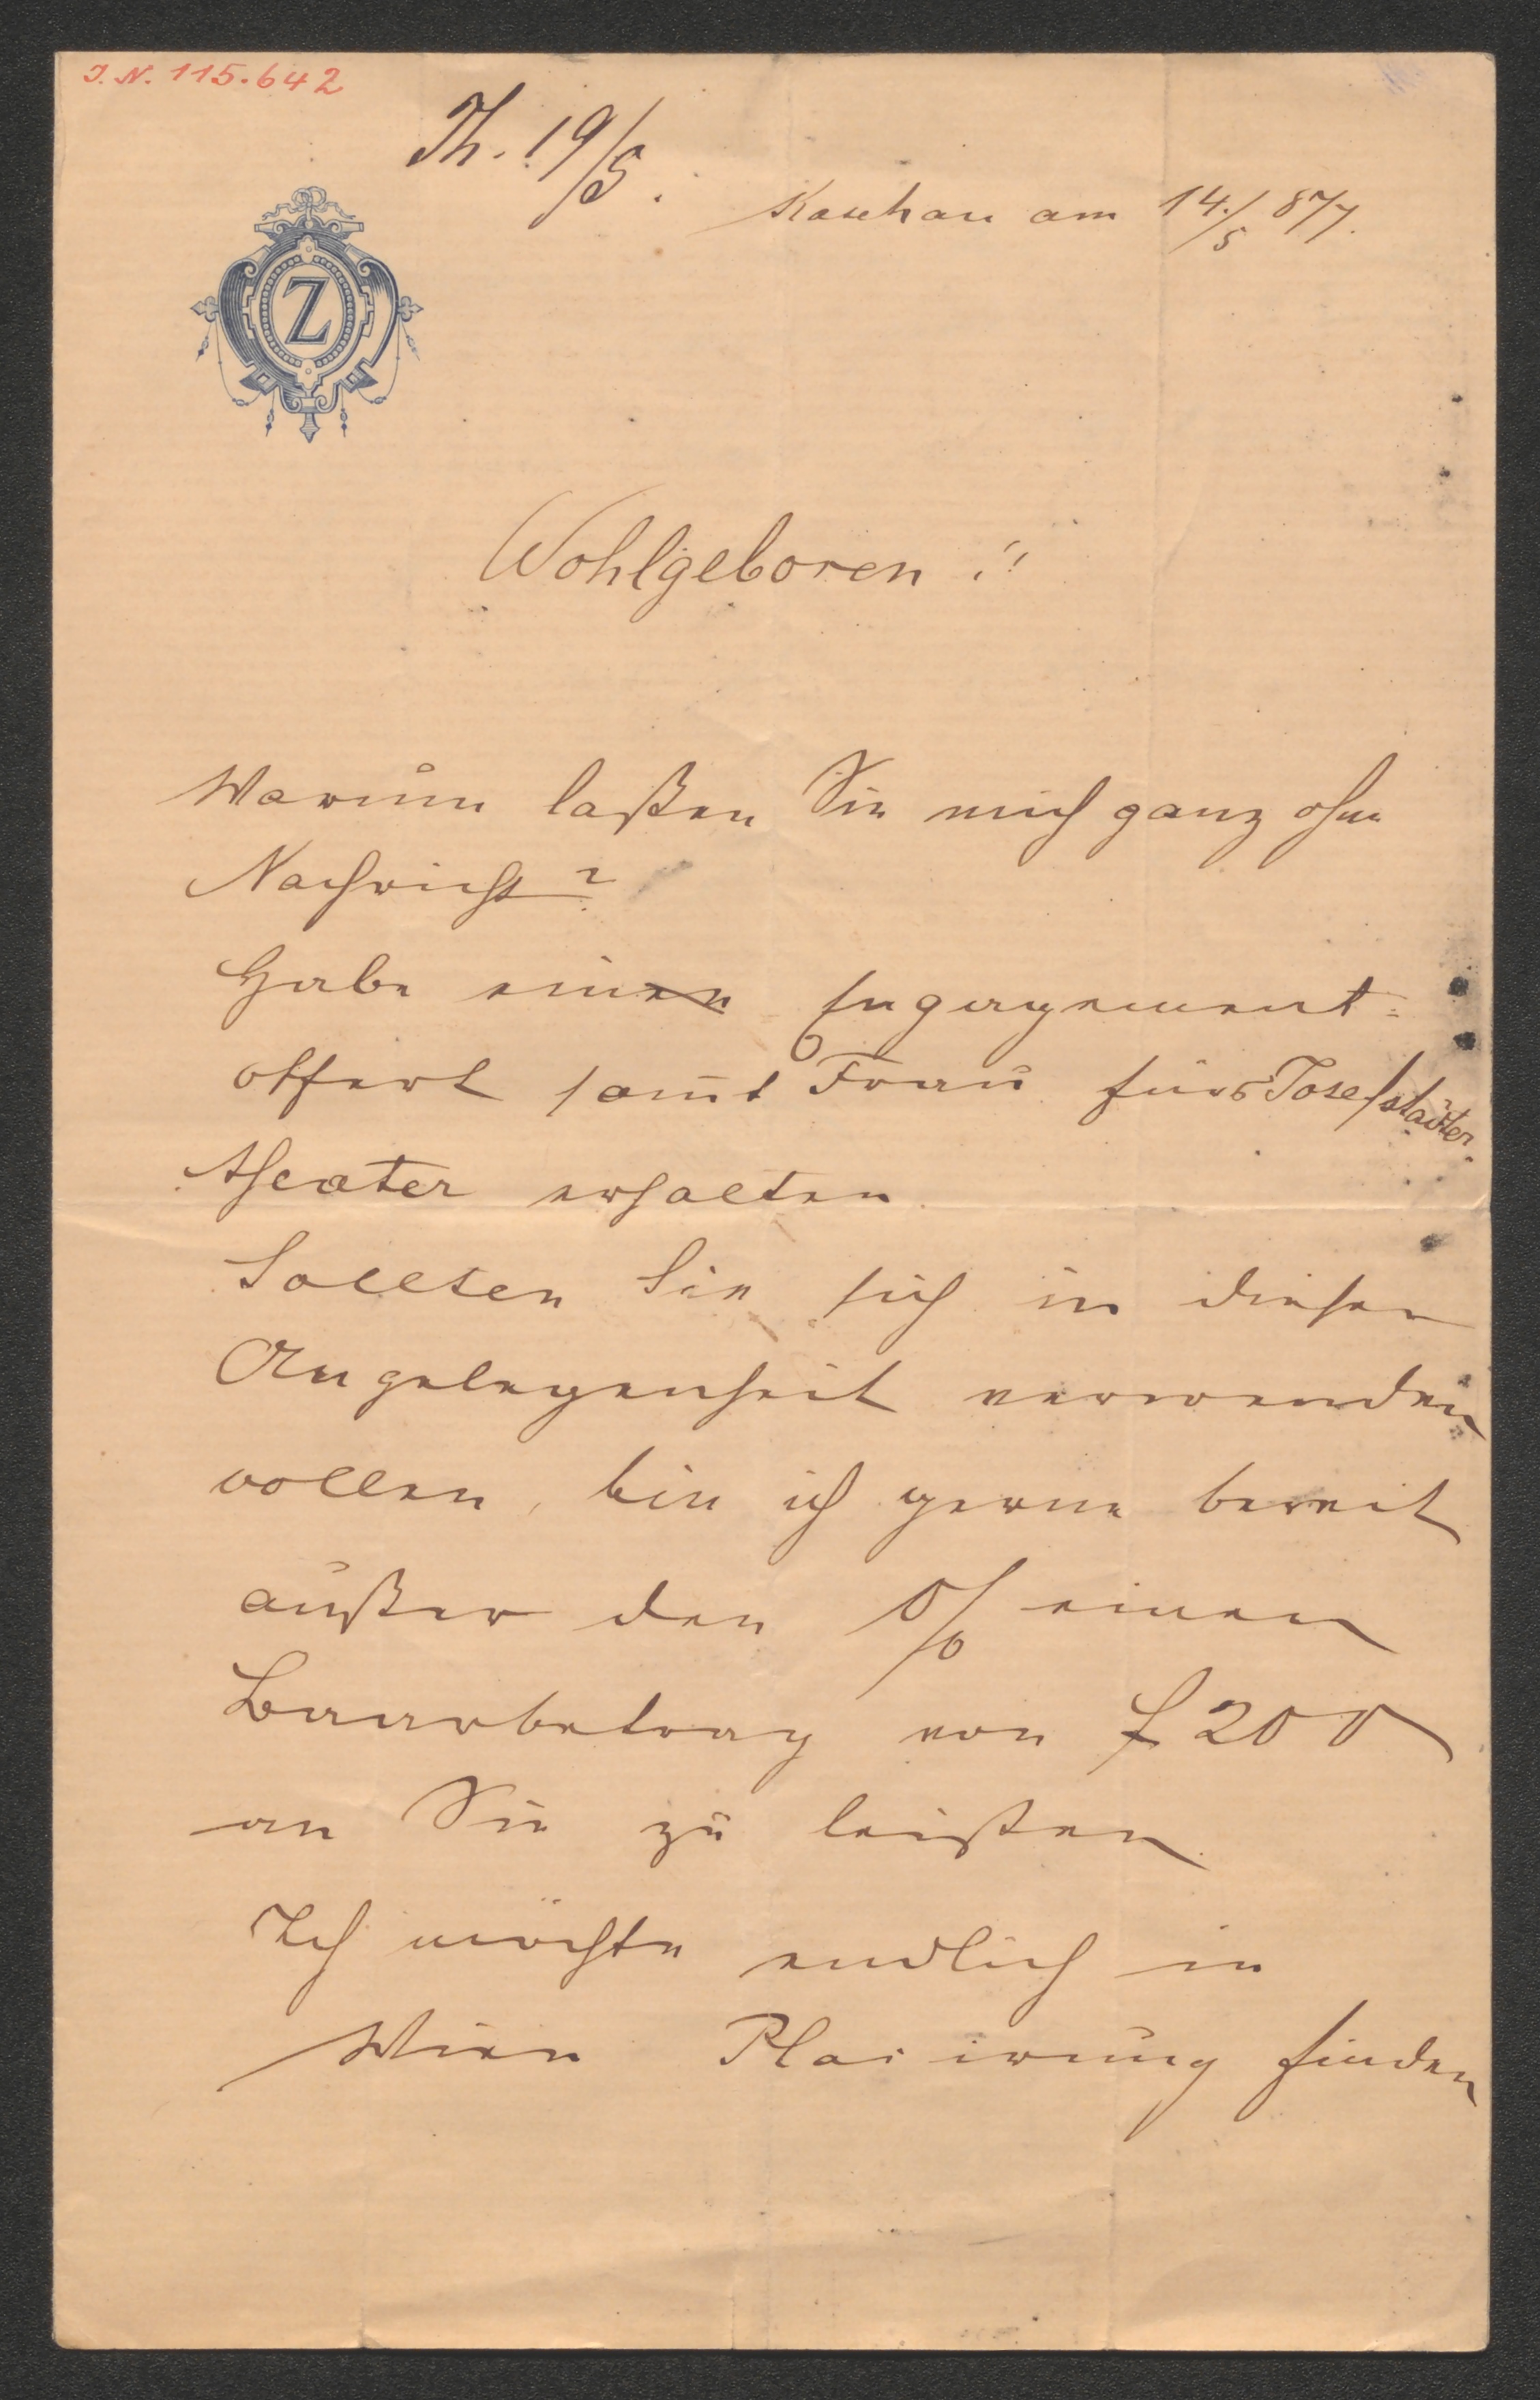 I. N. 115.642
Th. 19/5.
Kaschau am 14./5 877.
Z
Wohlgeboren!!
Warum laßen Sie mich ganz ohne
Nachricht?
Habe einen Engagement=
offert samt Frau fürs Josefstädter
theater erhalten.
Sollten Sie sich in dieser
Angelegenheit verwenden
wollen, bin ich gerne bereit
außer den % einen
Baarbetrag von f 200
an Sie zu leisten.
Ich möchte endlich in
Wien Plaiirung finden